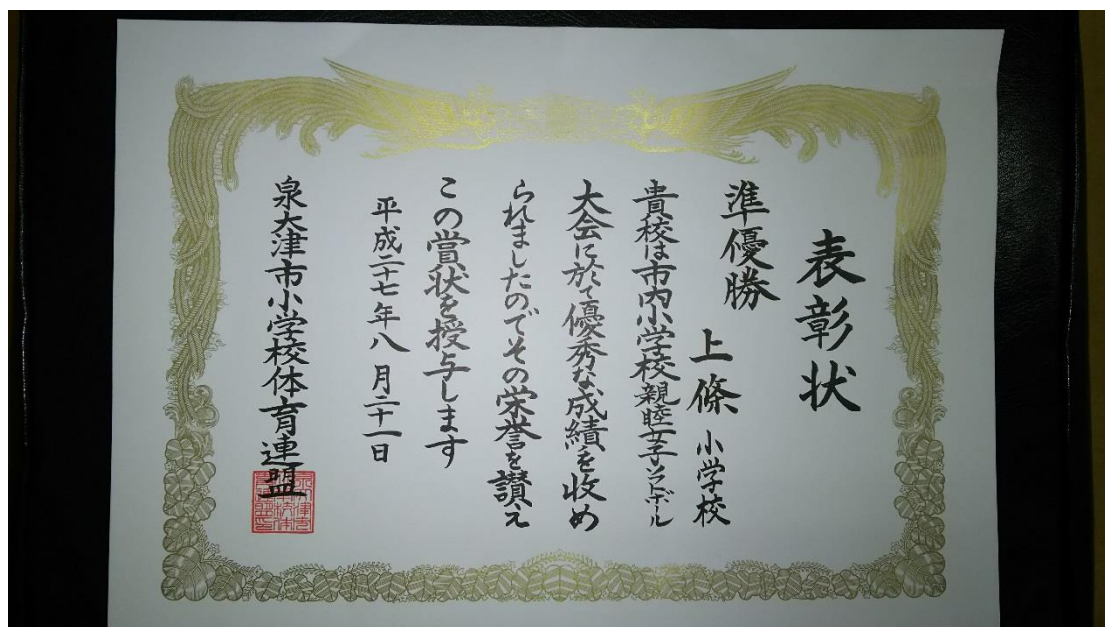 表彰状
準優勝
上條小学校
貴校は市内小学校親睦女子ソフトボール
大会に於て優秀な成績を収め
られましたのでその栄誉を讃え
この賞状を授与します
平成二十七年八月二十一日
泉大津市小学校体育連盟